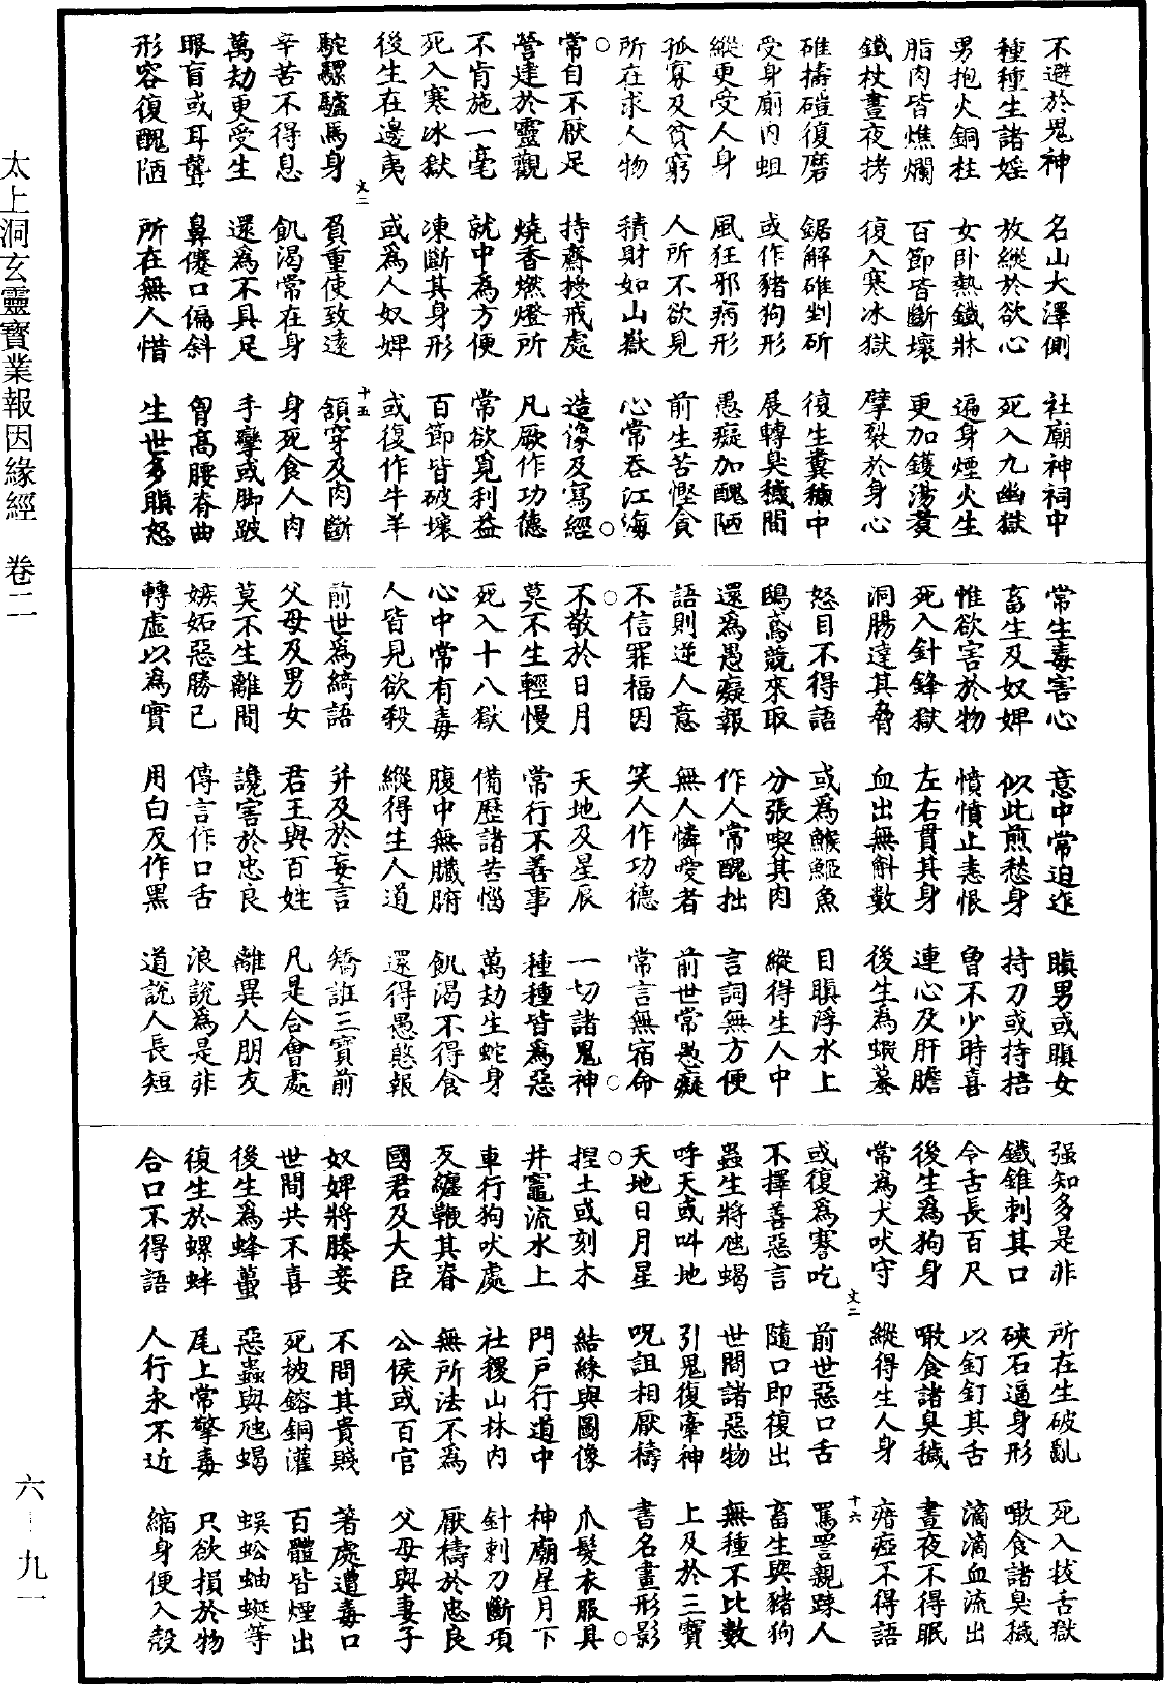 不避於鬼神　名山大澤側　社廟神祠中
種種生諸婬　放縱於欲心　死入九幽獄
男抱火銅柱　女卧熱鐵牀　遍身煙火生
脂肉皆燋爛　百節皆斷壞　更加鑊湯煑
鐵杖晝夜拷　復入寒冰獄　擘裂於身心
碓擣磑復磨　鋸解碓剉斫　復生糞穢中
受身廁内蛆　或作豬狗形　展轉臭穢間
縱更受人身　風狂邪病形　愚癡加醜陋
孤寡及貧窮　人所不欲見　前生苦慳貪
所在求人物　積財如山嶽　心常吞江海
常自不厭足　持齋授戒處　造像及寫經
營建於靈觀　燒香燃燈所　凡厥作功德
不肯施一毫　就中為方便　常欲覓利益
死入寒冰獄　凍斷其身形　百節皆破壞
後生在邊夷　或爲人奴婢　或復作牛羊
文二　十五
駝騾驢馬身　負重使致遠　領穿及肉斷
辛苦不得息　飢渴常在身　身死食人肉
萬劫更受生　還為不具足　手攣或脚跛
眼盲或耳聾　鼻僂口偏斜　胷高腰脊曲
形容復醜陋　所在無人惜　生世多瞋怒
常生毒害心　意中常迫迮　瞋男或瞋女
畜生及奴婢　似此煎愁身　持刀或持掊
惟欲害於物　憤憤止恚恨　曾不少時喜
死入針鋒獄　左右貫其身　連心及肝膽
洞腸達其脅　血出無斛數　後生為蝦蟇
怒目不得語　或為鯸䱌魚　目瞋浮水上
鴟鳶競來取　分張喫其肉　縱得生人中
還為愚癡報　作人常醜拙　言詞無方便
語則逆人意　無人憐愛者　前世常愚癡
不信罪福因　笑人作功德　常言無宿命
不敬於日月　天地及星辰　一切諸鬼神
莫不生輕慢　常行不善事　種種皆爲惡
死入十八獄　備歷諸苦惱　萬劫生蛇身
心中常有毒　腹中無臟腑　飢渴不得食
人皆見欲殺　縱得生人道　還得愚憨報
前世為綺語　并及於妄言　矯誑三寶前
父母及男女　君王與百姓　凡是合會處
莫不生離間　讒害於忠良　離異人朋友
嫉妬惡勝已　傳言作口舌　浪說為是非
轉虛以為實　用白反作黑　道說人長短
强知多是非　所在生破亂　死入拔舌獄
鐵錐刺其口　硤石逼身形　噉食諸臭穢
令舌長百尺　以釘釘其舌　滴滴血流出
後生爲狗身　噉食諸臭穢　晝夜不得眠
常為犬吠守　縱得生人身　瘖瘂不得語
文二　十六
或復為謇吃　前世惡口舌　罵詈親踈人
不擇善惡言　隨口即復出　畜生與豬狗
蟲生將虵蝎　世間諸惡物　無種不比數
呼天或叫地　引鬼復牽神　上及於三寶
天地日月星　呪詛相厭禱　書名畫形影
捏土或刻木　結緣與圖像　爪髮衣服具
井竈流水上　門戸行道中　神廟星月下
車行狗吠處　社稷山林内　針刺刀斷項
反纏鞭其脊　無所法不為　厭禱於忠良
國君及大臣　公侯或百官　父母與妻子
奴婢將媵妾　不問其貴賤　著處遭毒口
世間共不喜　死被鎔銅灌　百體皆煙出
後生爲蜂蠆　惡蟲與虺蝎　蜈蚣蚰蜒等
復生於螺蚌　尾上常擎毒　只欲損於物
合口不得語　人行永不近　縮身便入殼
太上洞玄靈寶業報因緣經　卷二
六－九一